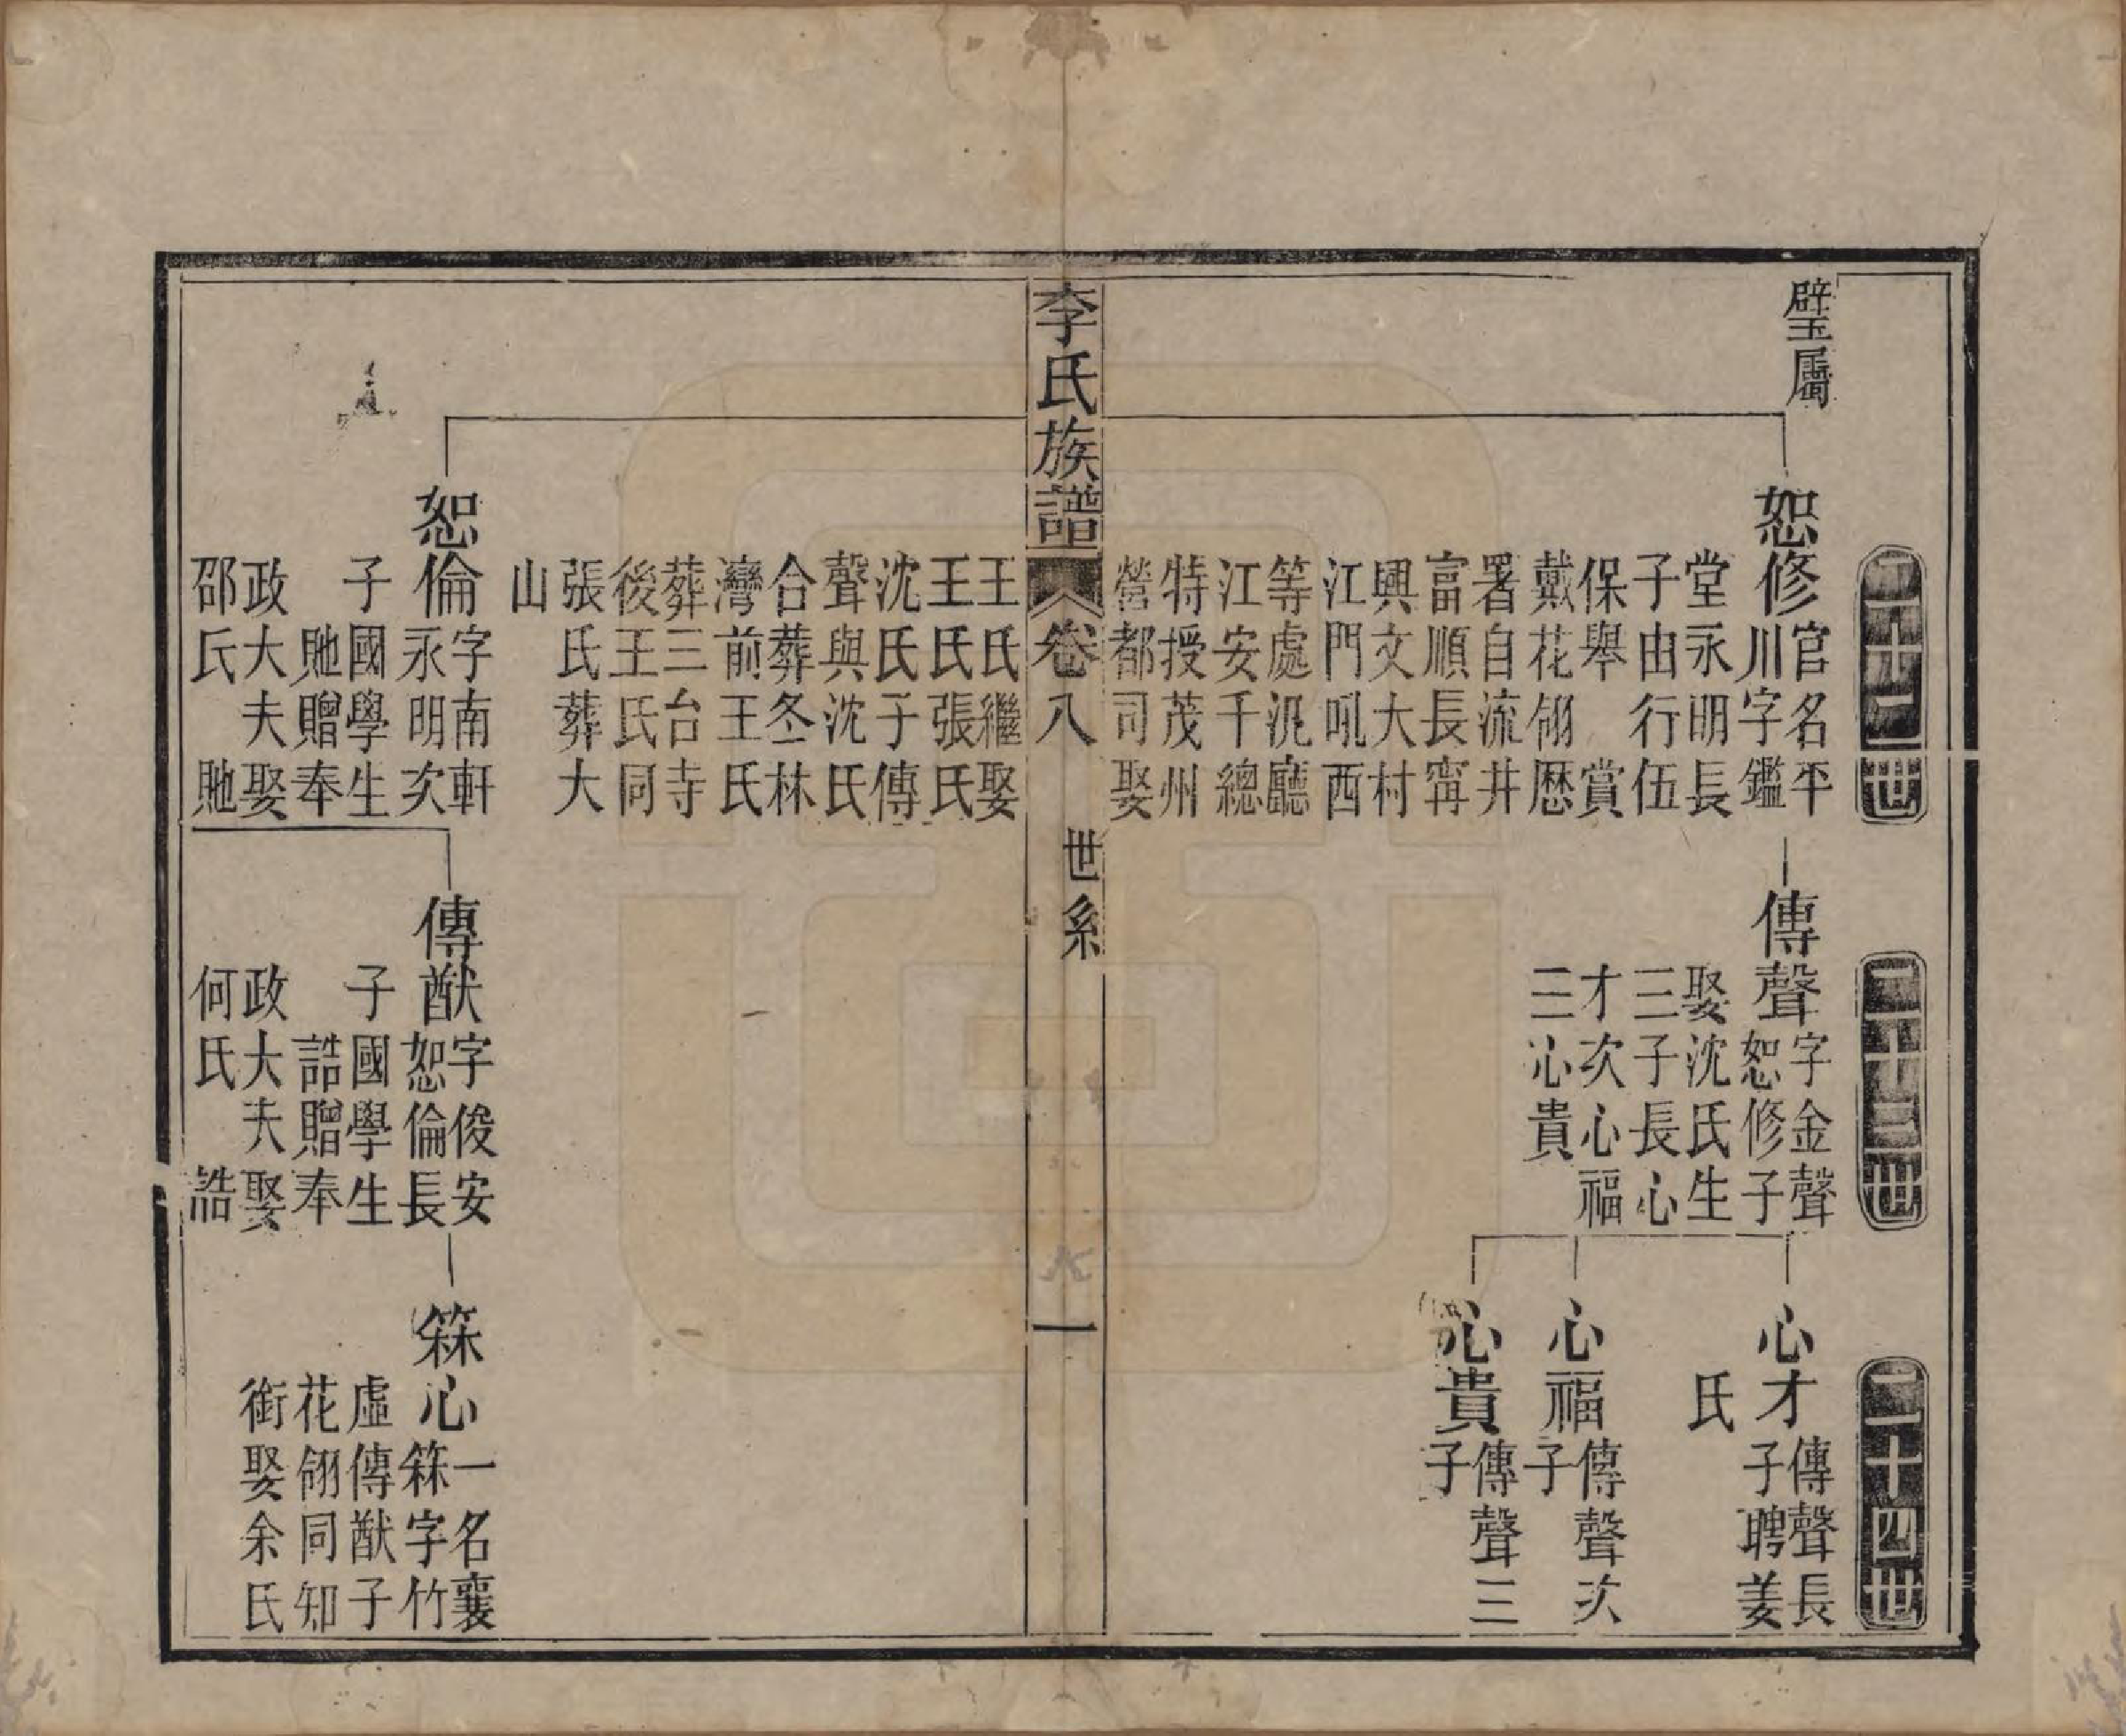 璧屬
二十二世
恕修
官名平
川字鑑
堂永明長
子由行伍
保舉 賞
戴花翎歷
署自流井
富順長甯
興文大村
江門吼西
等處汛廳
江安千總
特授茂州
營都司娶
王氏繼娶
王氏張氏
沈氏子傳
聲與沈氏
合葬冬林
灣前王氏
葬三台寺
後王氏同
張氏葬大
山
恕倫
字南軒
永明次
子國學生
貤贈奉
政大夫娶
邵氏 貤
二十三世
傳聲
字金聲
恕修子
娶沈氏生
三子長心
才次心福
三心貴
傳猷
字俊安
恕倫長
子國學生
誥贈奉
政大夫娶
何氏 誥
二十四世
心才
傳聲長
子聘姜
氏
心福
傳聲次
子
心貴
傳聲三
子
箖心
一名襄
箖字竹
虛傳猷子
花翎同知
銜娶余氏
李氏族譜
卷八
世系
一